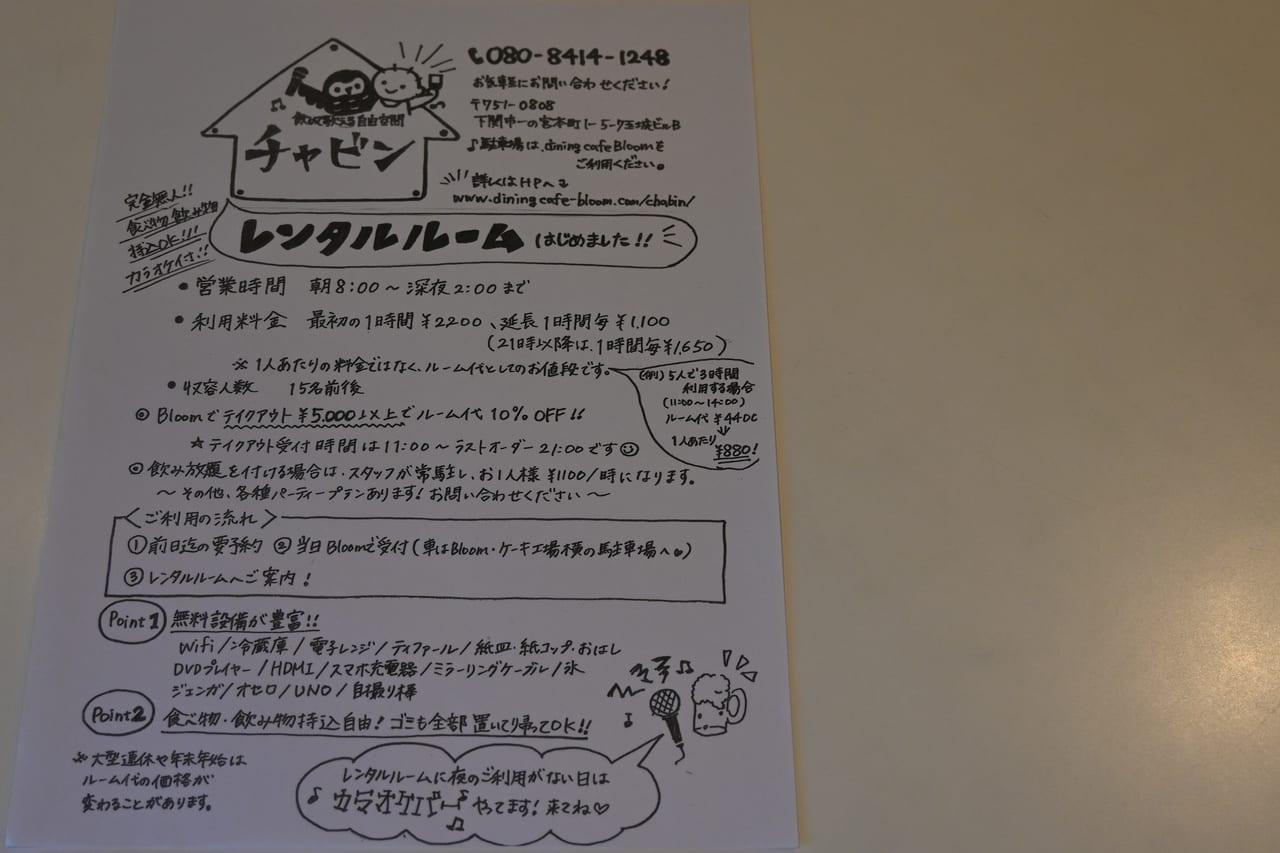 080-8414-1248
お気軽にお問い合わせください!
〒751-0808
下関市一の宮本町1-5-7玉城ビルB
♪駐車場は、dining cafe Bloomを
ご利用ください。
詳しくはHPへ
www.diningcafe-bloom.com/chabin/
飲んで歌える自由空間
チャビン
完全無人!!
食べ物飲み物
持込OK!!!
カラオケ付!!
レンタルルーム はじめました!!
• 営業時間 朝8:00〜深夜2:00まで
• 利用料金 最初の1時間¥2200、延長1時間毎¥1,100
(21時以降は、1時間毎¥1,650)
※1人あたりの料金ではなく、ルーム代としてのお値段です。
(例) 5人で3時間
利用する場合
(11:00〜14:00)
ルーム代 ¥4400
↓
1人あたり
¥880!
• 収容人数 15名前後
◎ Bloomでテイクアウト¥5.000以上でルーム代10%OFF!!
☆テイクアウト受付時間は11:00〜ラストオーダー21:00です
◎ 飲み放題を付ける場合は、スタッフが常駐し、お1人様¥1100/時になります。
〜その他、各種パーティープランあります!お問い合わせください〜
〈ご利用の流れ〉
①前日迄の要予約 ②当日Bloomで受付(車はBloom・ケーキ工場横の駐車場へ♥)
③レンタルルームへご案内!
Point1 無料設備が豊富!!
Wifi/冷蔵庫/電子レンジ/ティファール/紙皿・紙コップ・おはし
DVDプレイヤー/HDMI/スマホ充電器/ミラーリングケーブル/氷
ジェンガ/オセロ/UNO/自撮り棒
Point2 食べ物・飲み物持込自由!ゴミも全部置いてり帰ってOK!!
※大型連休や年末年始は
ルーム代の価格が
変わることがあります。
レンタルルームに夜のご利用がない日は
♪カラオケバー♪やってます!来てね♡